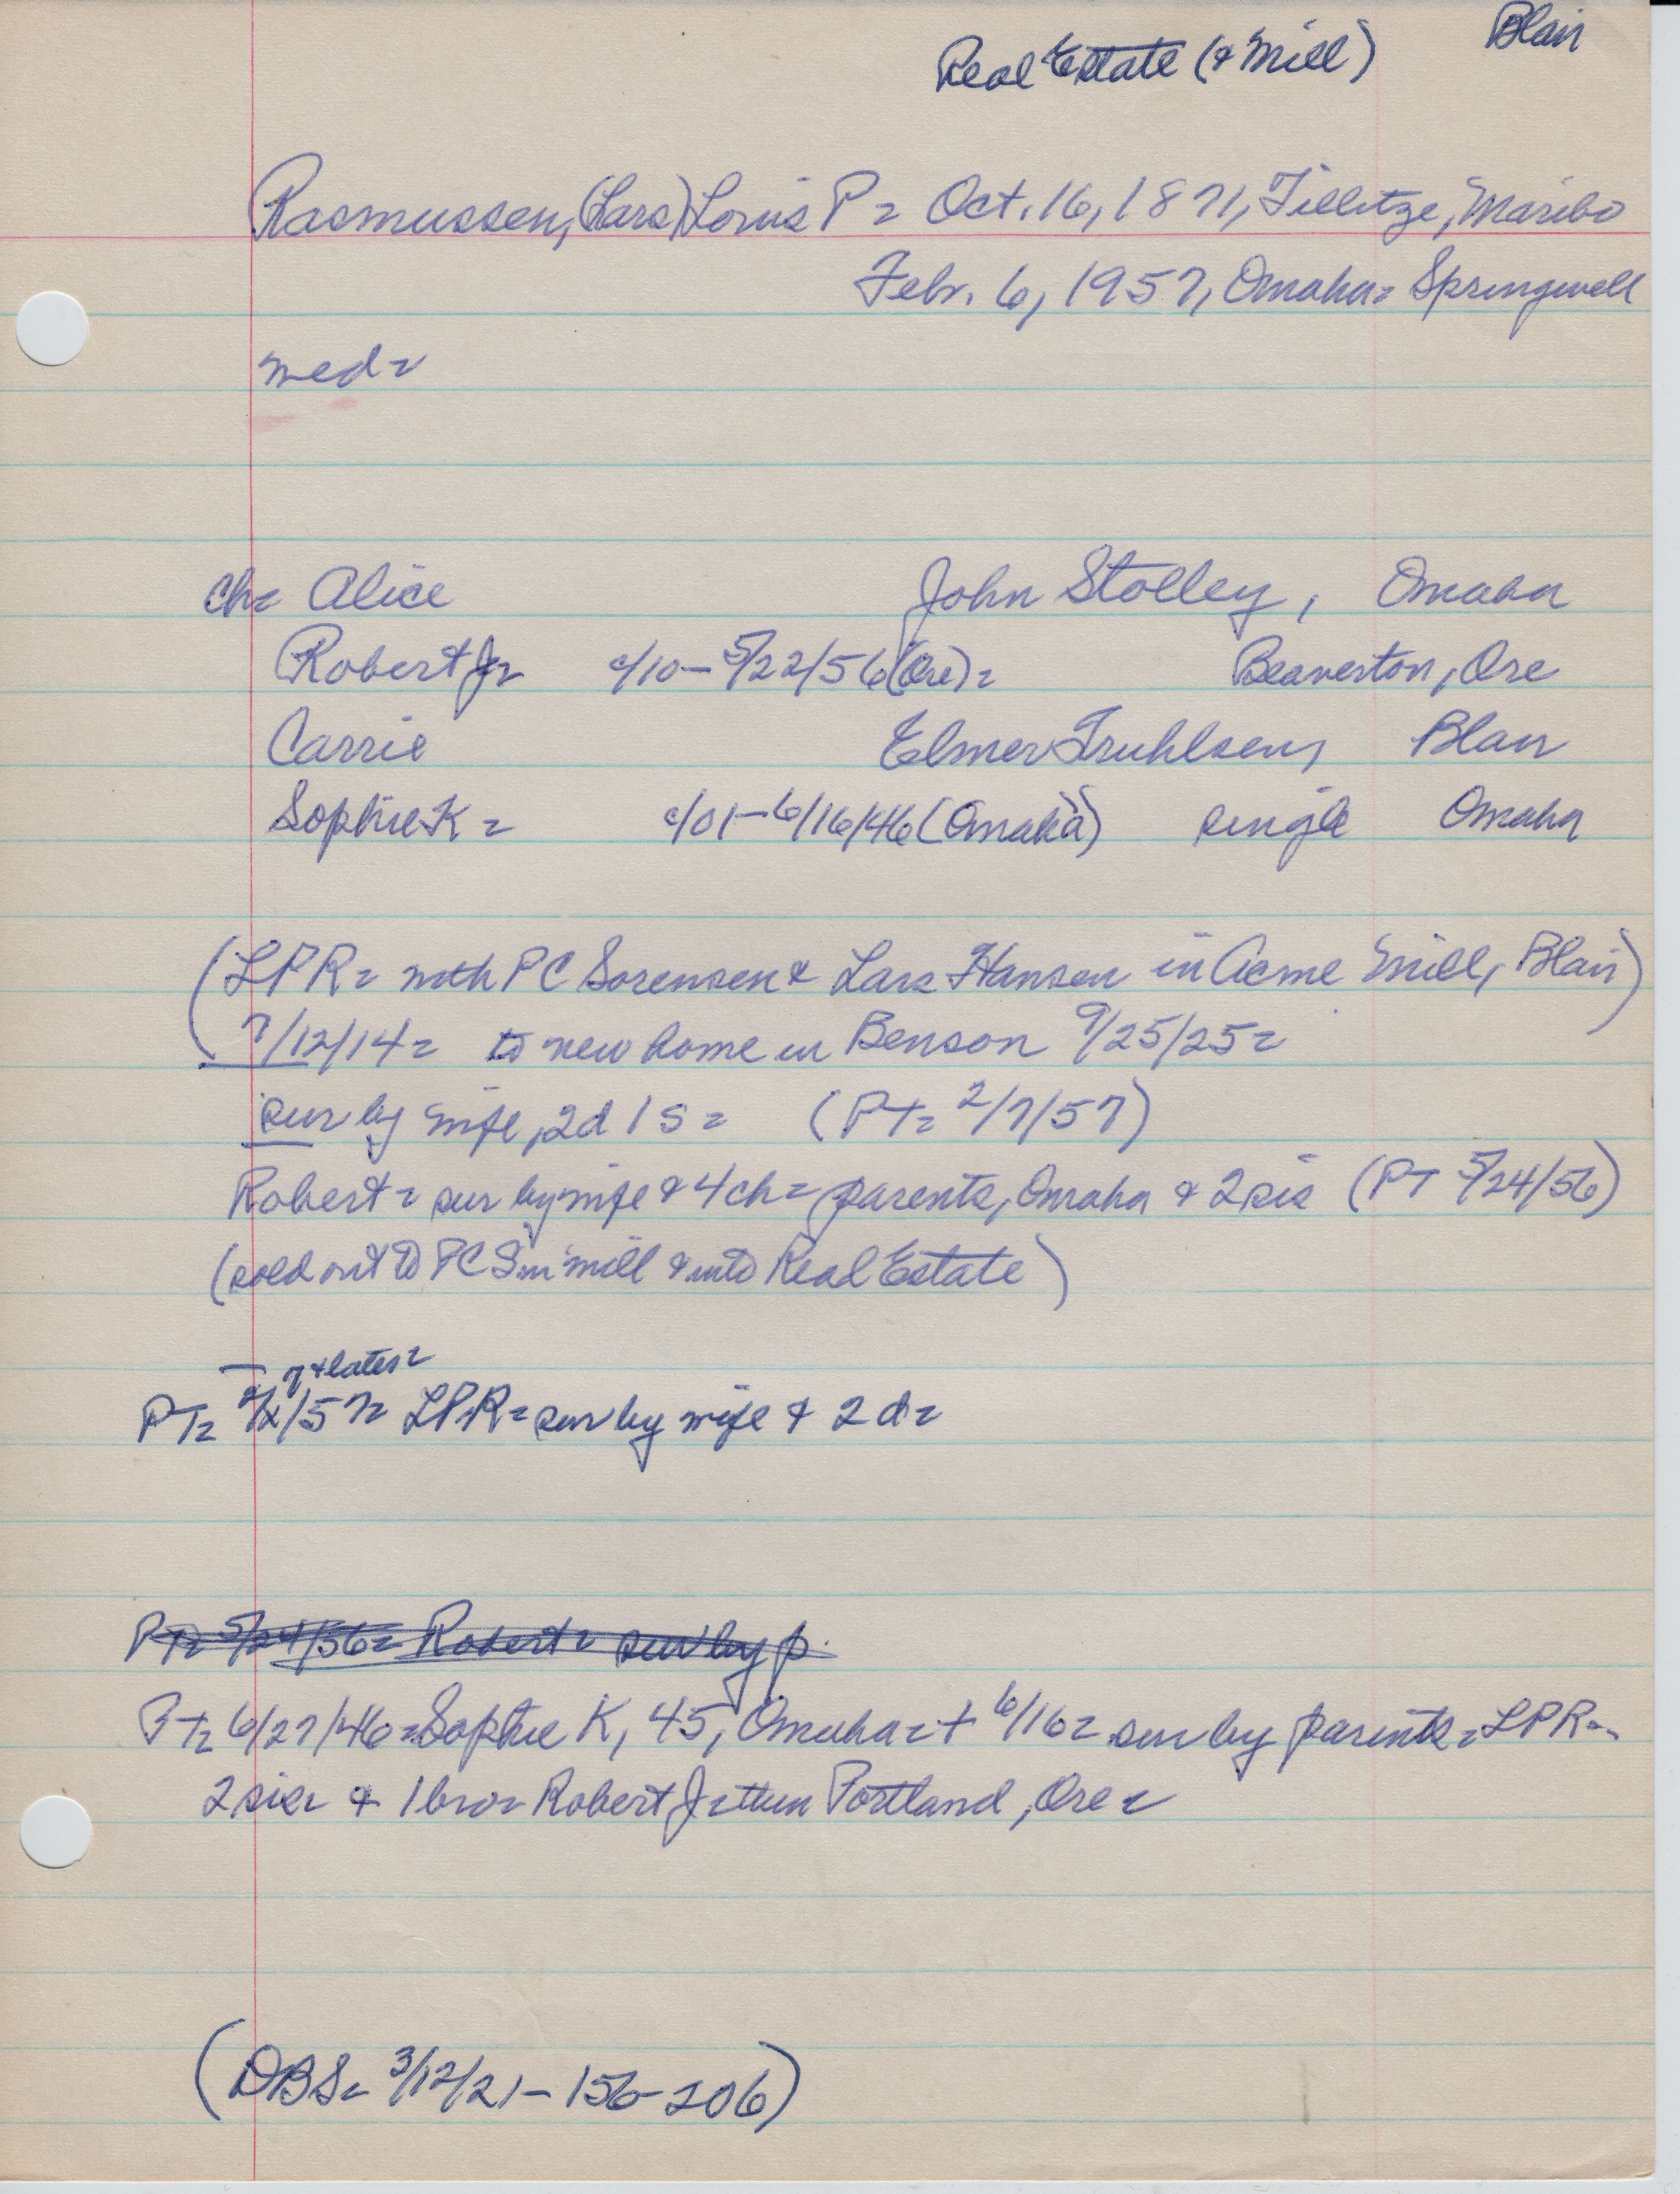 Blair
Real Estate (& Mill)
Rasmussen, (Lars) Louis P = Oct. 16, 1871, Tillitze, Maribo
Febr. 6, 1957, Omaha= Springwell
med=
ch= Alice John Stolley, Omaha
Robert J= c/10-5/22/56 (Ore)= Beaverton, Ore
Carrie Elmer Truhlsen, Blair
Sophie K = c/01-6/16/46 (Omaha) single Omaha
(LPR= with PC Sorensen & Lars Hansen in Acme Mill, Blair)
7/12/14= to new home in Benson 9/25/25=
sur by wife, 2d 1s = (PT= 2/7/57)
Robert= sur by wife & 4 ch= parents, Omaha & 2 sis (PT 5/24/56)
(sold out to PCS in mill & into Real Estate)
7 & later=
PT= 2/ /57= LPR= sur by wife & 2 d=
PT= 5/24/56= Robert= sur by p.
PT= 6/27/46= Sophie K, 45, Omaha= + 6/16= sur by parents= LPR=
2 sis= & 1 bro= Robert J= then Portland, Ore=
(DBS= 3/12/21-156-206)